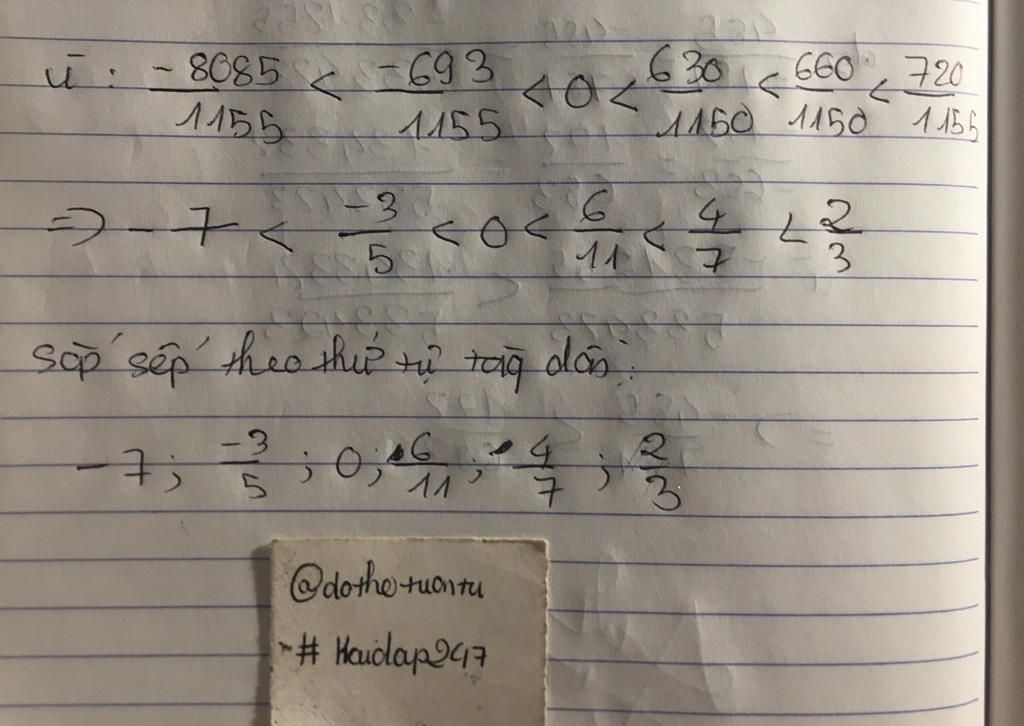 Vì : -8085/1155 < -693/1155 < 0 < 630/1150 < 660/1150 < 720/1155
=> -7 < -3/5 < 0 < 6/11 < 4/7 < 2/3
sắp sếp theo thứ tự tăg dần :
-7 ; -3/5 ; 0 ; 6/11 ; 4/7 ; 2/3
@dothetuantu
# Hoidap247